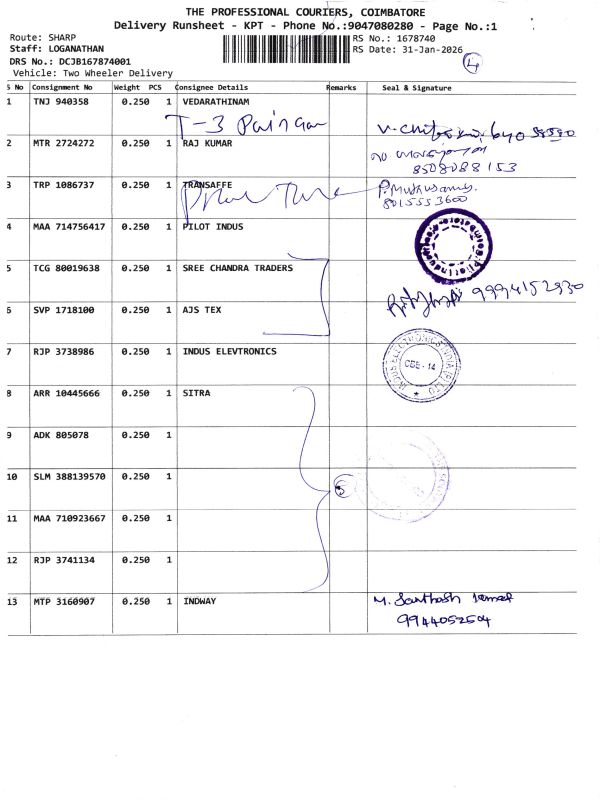 THE PROFESSIONAL COURIERS, COIMBATORE
Delivery Runsheet - KPT - Phone No.:9047080280 - Page No.:1
Route: SHARP
RS No.: 1678740
Staff: LOGANATHAN
RS Date: 31-Jan-2026
4
DRS No.: DCJB167874001
Vehicle: Two Wheeler Delivery
S No Consignment No Weight PCS Consignee Details Remarks Seal & Signature
1 TNJ 940358 0.250 1 VEDARATHINAM
T-3
2 MTR 2724272 0.250 1 RAJ KUMAR
8508088153
3 TRP 1086737 0.250 1 TRANSAFFE
8015553600
4 MAA 714756417 0.250 1 PILOT INDUS
5 TCG 80019638 0.250 1 SREE CHANDRA TRADERS
9994152930
6 SVP 1718100 0.250 1 AJS TEX
7 RJP 3738986 0.250 1 INDUS ELEVTRONICS
CBE - 14
8 ARR 10445666 0.250 1 SITRA
9 ADK 805078 0.250 1
10 SLM 388139570 0.250 1
5
11 MAA 710923667 0.250 1
12 RJP 3741134 0.250 1
13 MTP 3160907 0.250 1 INDWAY
M. Santhosh kumar
9944052504